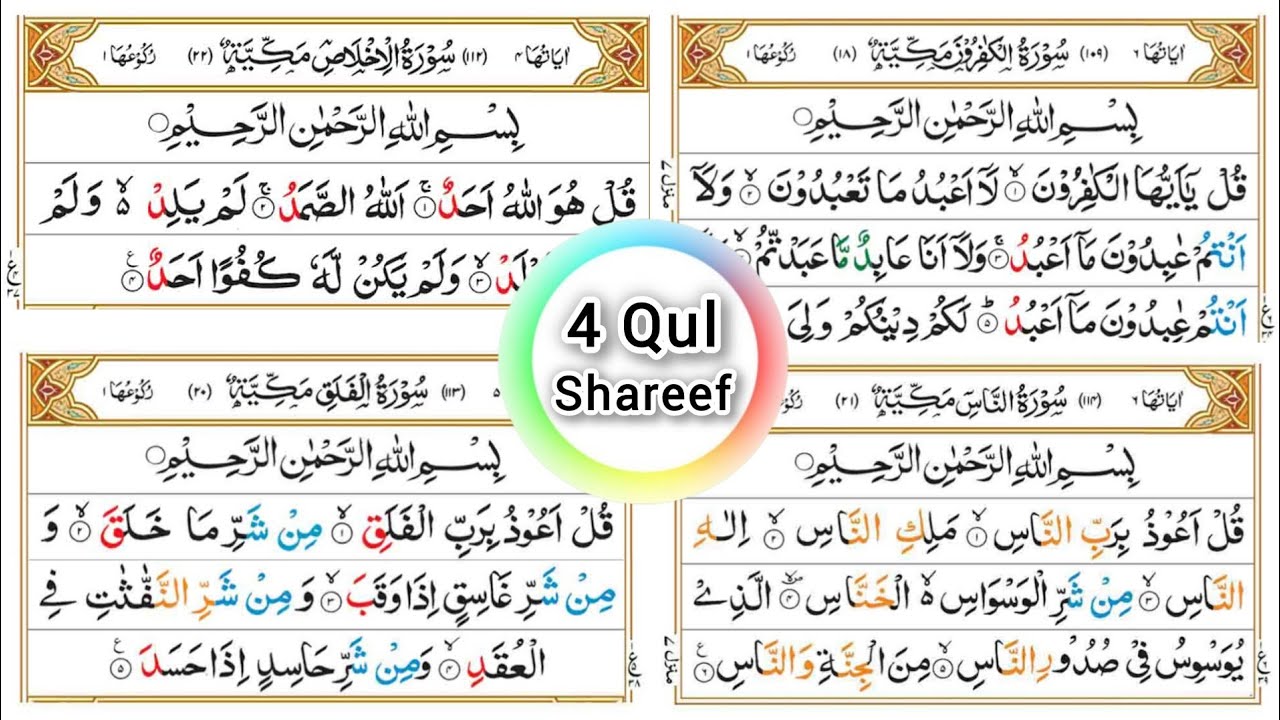 اٰيَاتُهَا ۴ (۱۱۲) سُوْرَةُ الْاِخْلَاصِ مَكِّيَّةٌ (۲۲) رُكُوْعُهَا ۱
بِسْمِ اللهِ الرَّحْمٰنِ الرَّحِيْمِ
قُلْ هُوَ اللهُ اَحَدٌ ۱ۚ اَللهُ الصَّمَدُ ۲ۚ لَمْ يَلِدْ ۵ۙ وَلَمْ
۳ۙ وَلَمْ يَكُنْ لَّهٗ كُفُوًا اَحَدٌ ۴
اٰيَاتُهَا ۶ (۱۰۹) سُوْرَةُ الْكٰفِرُوْنَ مَكِّيَّةٌ (۱۸) رُكُوْعُهَا ۱
بِسْمِ اللهِ الرَّحْمٰنِ الرَّحِيْمِ
قُلْ يٰۤاَيُّهَا الْكٰفِرُوْنَ ۱ۙ لَاۤ اَعْبُدُ مَا تَعْبُدُوْنَ ۲ۙ وَلَاۤ
اَنْتُمْ عٰبِدُوْنَ مَاۤ اَعْبُدُ ۳ۚ وَلَاۤ اَنَا عَابِدٌ مَّا عَبَدْتُّمْ ۴ۙ
اَنْتُمْ عٰبِدُوْنَ مَاۤ اَعْبُدُ ۵ؕ لَكُمْ دِيْنُكُمْ وَلِىَ
منزل ۷
4 Qul
Shareef
(۱۱۳) سُوْرَةُ الْفَلَقِ مَكِّيَّةٌ (۲۰) رُكُوْعُهَا ۱
بِسْمِ اللهِ الرَّحْمٰنِ الرَّحِيْمِ
قُلْ اَعُوْذُ بِرَبِّ الْفَلَقِ ۱ۙ مِنْ شَرِّ مَا خَلَقَ ۲ۙ وَ
مِنْ شَرِّ غَاسِقٍ اِذَا وَقَبَ ۳ۙ وَ مِنْ شَرِّ النَّفّٰثٰتِ فِى
الْعُقَدِ ۴ۙ وَمِنْ شَرِّ حَاسِدٍ اِذَا حَسَدَ ۵
اٰيَاتُهَا ۶ (۱۱۴) سُوْرَةُ النَّاسِ مَكِّيَّةٌ (۲۱)
بِسْمِ اللهِ الرَّحْمٰنِ الرَّحِيْمِ
قُلْ اَعُوْذُ بِرَبِّ النَّاسِ ۱ۙ مَلِكِ النَّاسِ ۲ۙ اِلٰهِ
النَّاسِ ۳ۙ مِنْ شَرِّ الْوَسْوَاسِ ۵ۙ الْخَنَّاسِ ۴ الَّذِىْ
يُوَسْوِسُ فِىْ صُدُوْرِ النَّاسِ ۵ۙ مِنَ الْجِنَّةِ وَالنَّاسِ ۶
منزل ۷